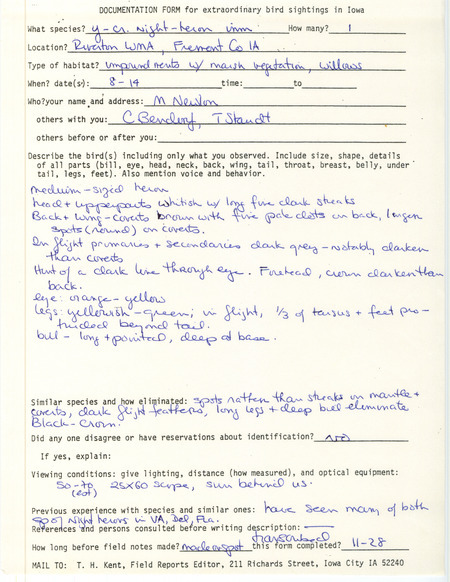 DOCUMENTATION FORM for extraordinary bird sightings in Iowa
What species? y-cr. Night-heron imm How many? 1
Location? Riverton WMA, Fremont Co IA
Type of habitat? impoundments w/ marsh vegetation, willows
When? date(s): 8-14 time: to
Who?your name and address: M Newlon
others with you: C Bendorf, T Staudt
others before or after you:
Describe the bird(s) including only what you observed. Include size, shape, details
of all parts (bill, eye, head, neck, back, wing, tail, throat, breast, belly, under
tail, legs, feet). Also mention voice and behavior.
medium-sized heron
head + upperparts whitish w/ long fine dark streaks
Back + wing-coverts brown with fine pale dots on back, longer
spots (round) on coverts.
In flight primaries + secondaries dark grey - notably darker
than coverts
Hint of a dark line through eye. Forehead, crown darker than
back.
eye: orange-yellow
legs: yellowish-green; in flight, 1/3 of tarsus + feet pro-
truded beyond tail.
bill - long + pointed, deep at base.
Similar species and how eliminated: spots rather than streaks on mantle +
coverts, dark flight feathers, long legs + deep bill eliminate
Black-crown.
Did any one disagree or have reservations about identification? no
If yes, explain:
Viewing conditions: give lighting, distance (how measured), and optical equipment:
50-70 25X60 scope, sun behind us.
(est)
Previous experience with species and similar ones: have seen many of both
sp of Night herons in VA, Del, Fla.
References and persons consulted before writing description: —
transcribed
How long before field notes made? made on spot this form completed? 11-28
MAIL TO: T. H. Kent, Field Reports Editor, 211 Richards Street, Iowa City IA 52240